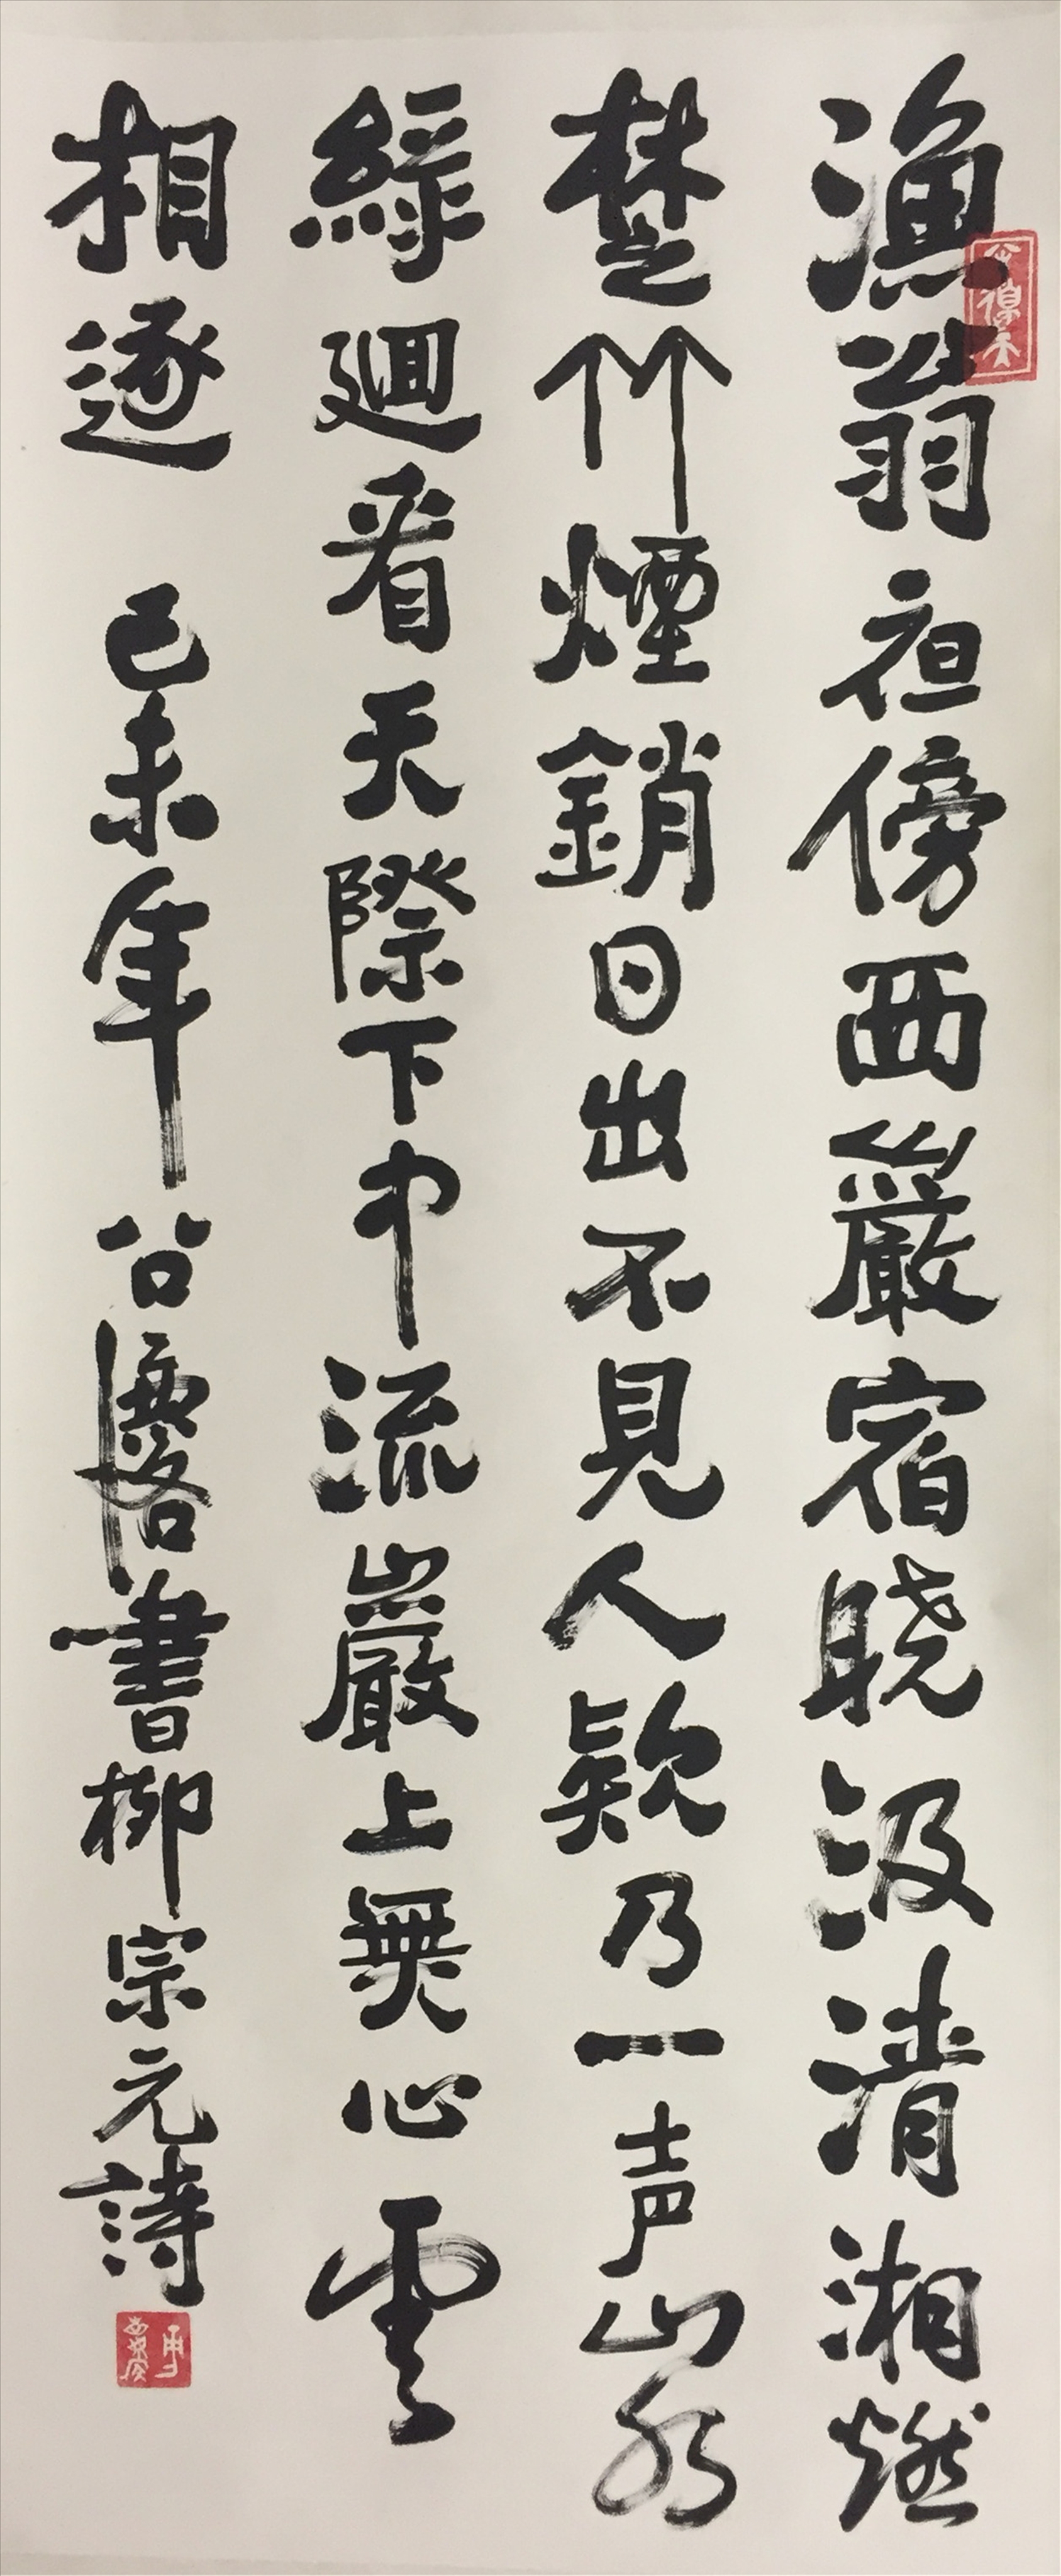 漁翁夜傍西巖宿曉汲清湘燃
楚竹煙銷日出不見人欵乃一声山水
綠廻看天際下中流巖上無心雲
相逐 己未年 公 書柳宗元詩